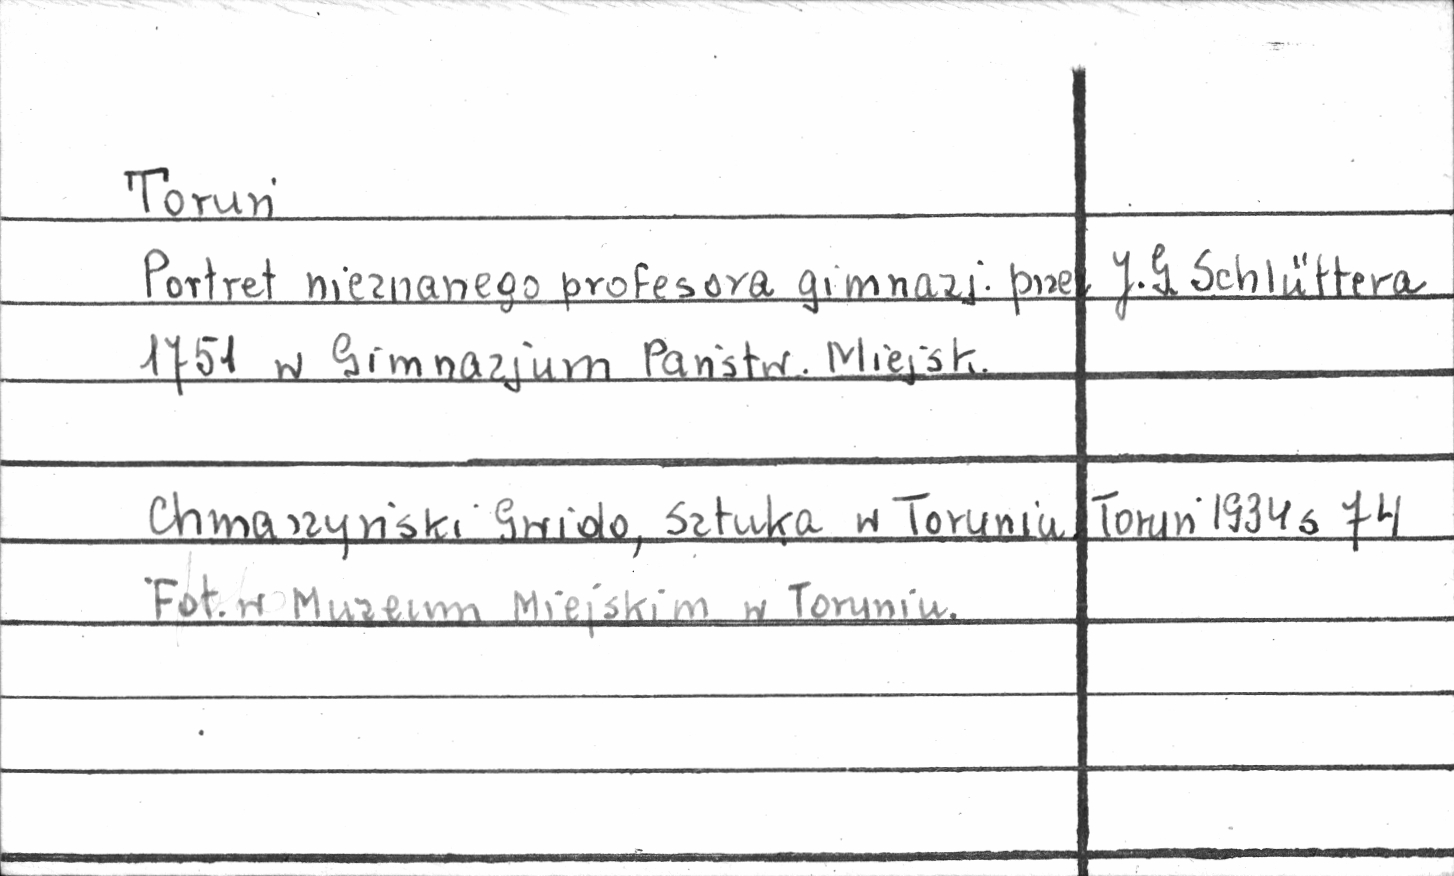 Toruń
Portret nieznanego profesora gimnazj. przez J.G. Schlüttera
1751 w Gimnazjum Państw. Miejsk.
Chmarzyński Gwido, Sztuka w Toruniu Toruń 1934 s 74
Fot. w Muzeum Miejskim w Toruniu.